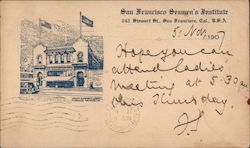 San Francisco Seamen's Institute
242 Stewart St., San Francisco, Cal., U.S.A.
5 Nov 1907
Hope you can
attend Ladies
meeting at 5.30 pm
this Thursday.